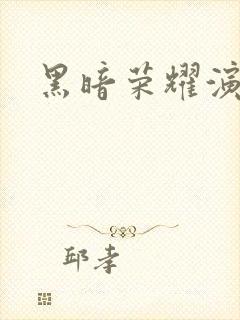 黑暗荣耀演
邱孝